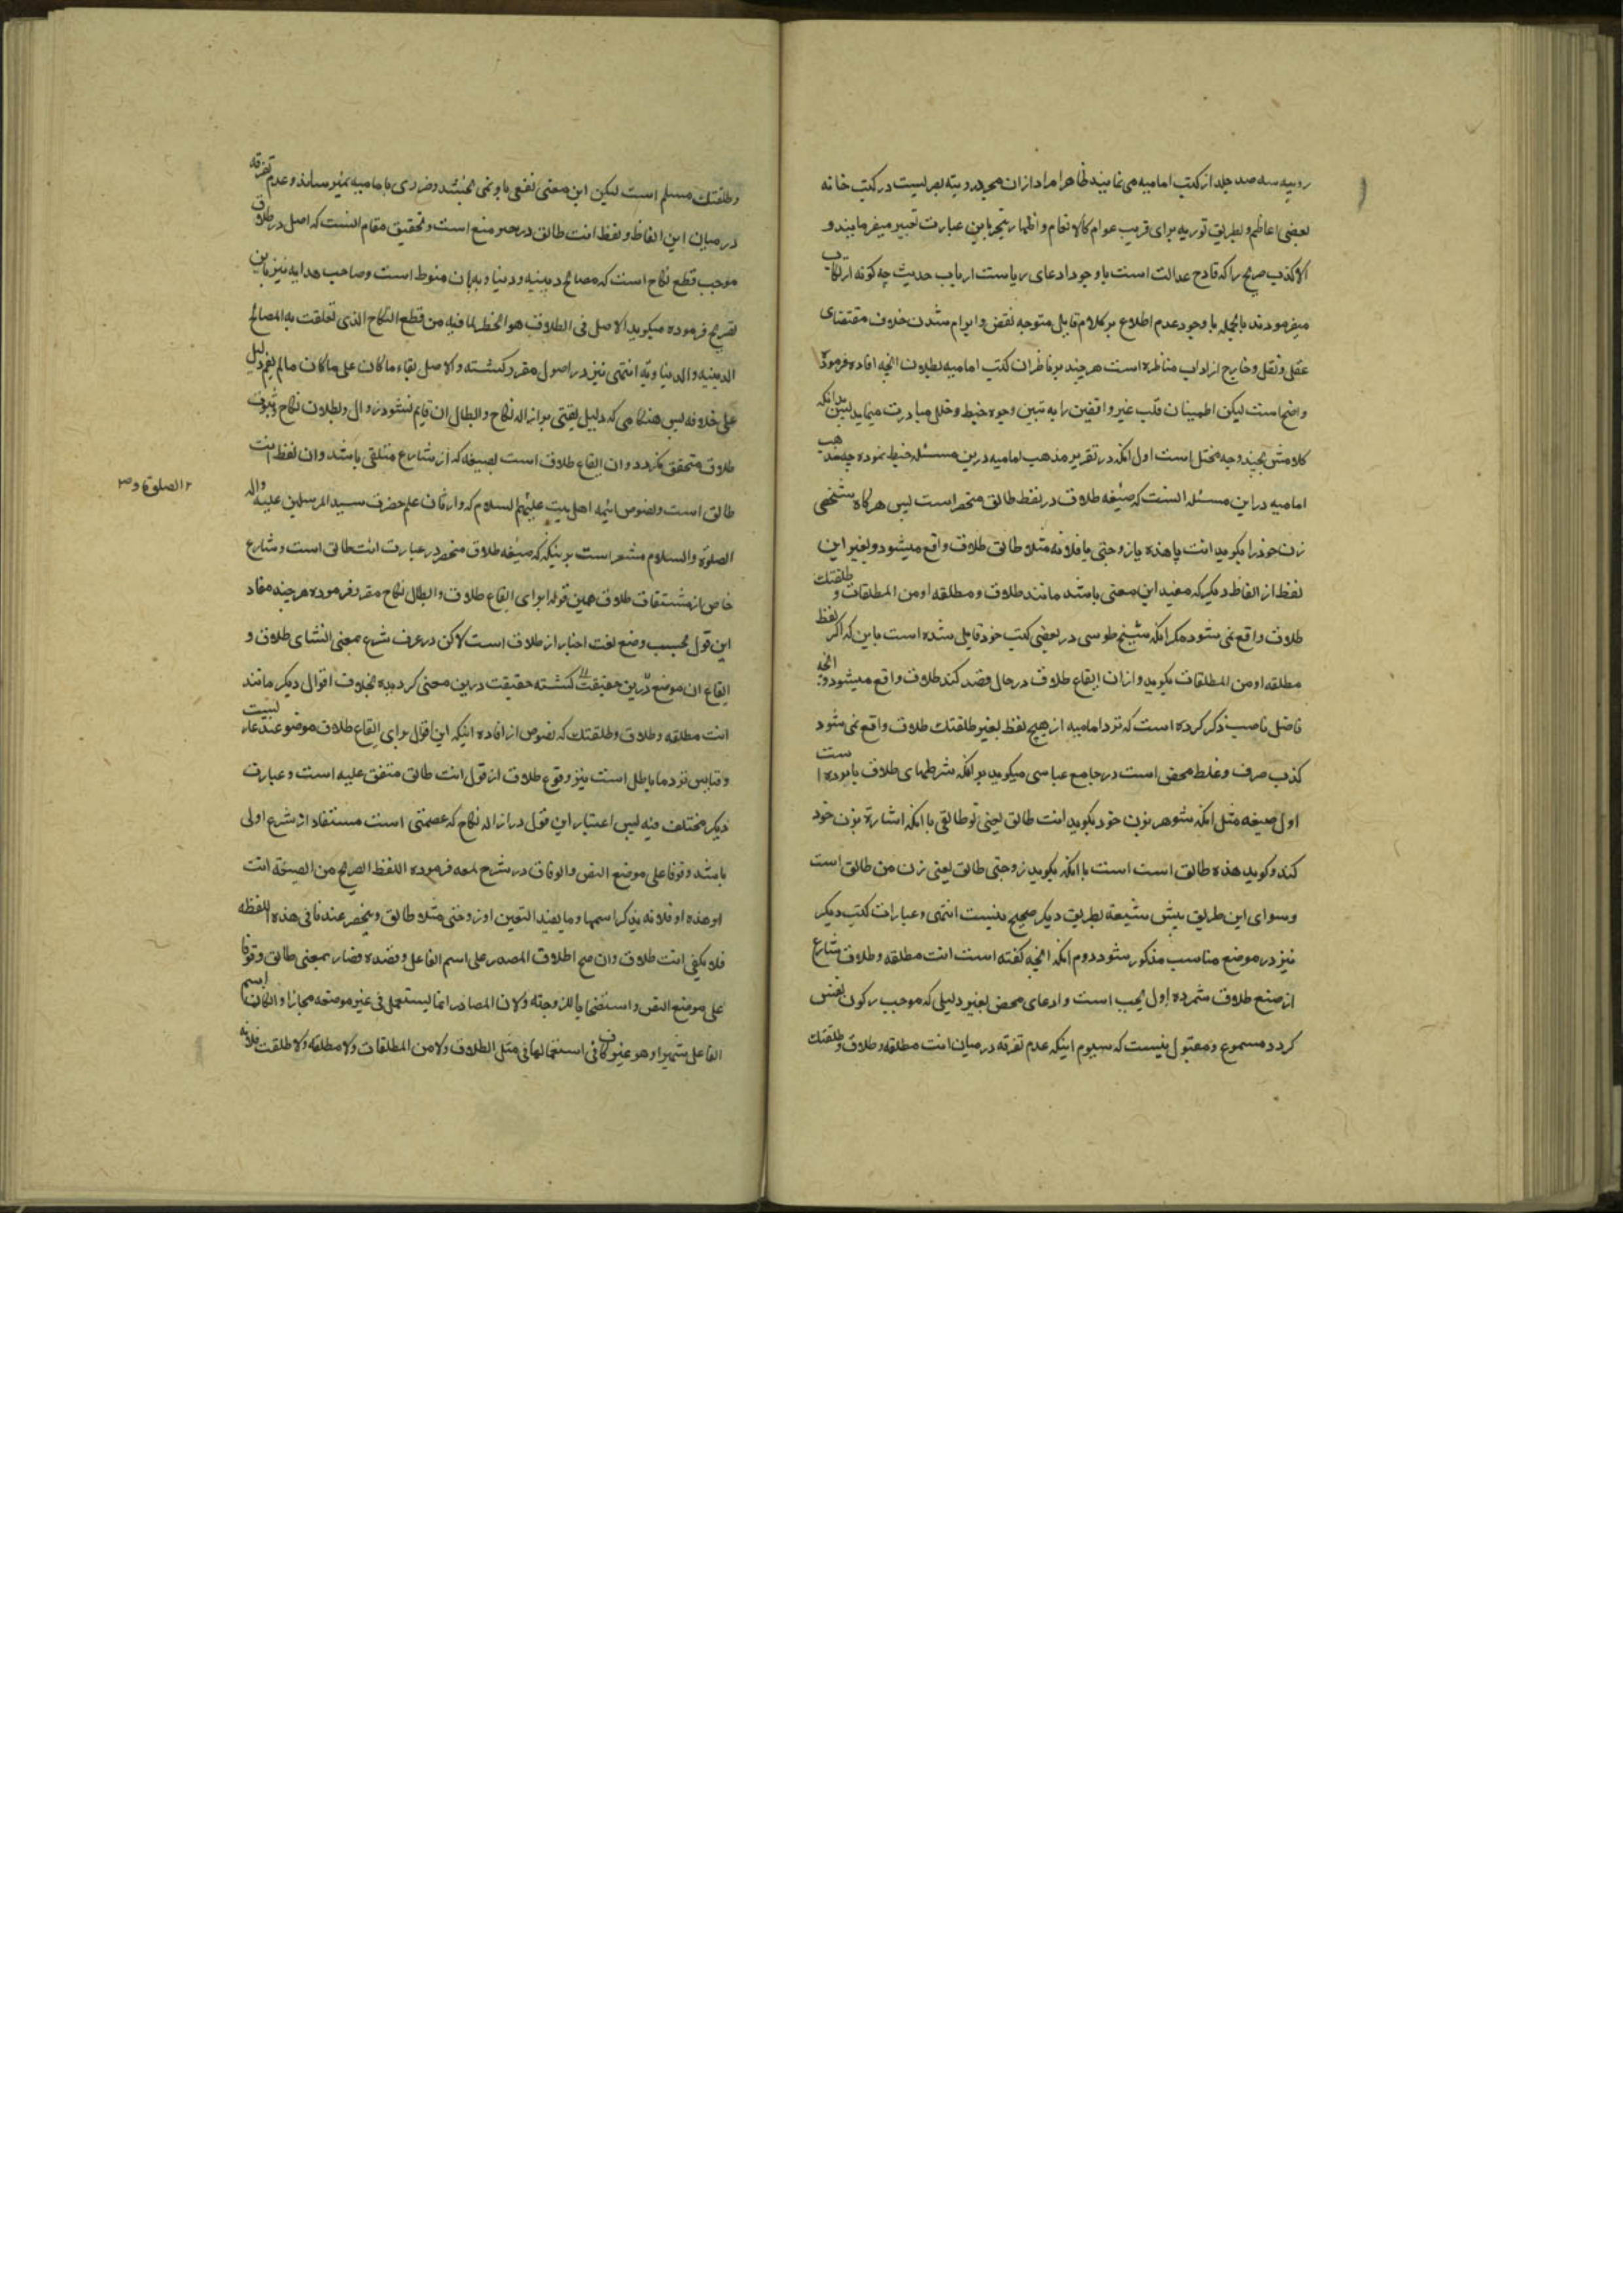 رویه سه صد جلد از کتب امامیه می نمایند ظاهرا مراد از ان مجرد رویته بصریست در کتب خانه
بعضی اعاظم و بطریق توریه برای فریب عوام کالانعام و اظهار تبحر باین عبارت تعبیر میفرمایند و
الا کذب صریح را که قادح عدالت است باوجود ادعای ریاست ارباب حدیث چه کونه ارتکاب
میفرمودند بالجمله باوجود عدم اطلاع بر کلام قایل متوجه نقض و ابرام شدن خلاف مقتضای
عقل و نقل و خارج از اداب مناظره است هر چند بر ناظران کتب امامیه بطلان انچه افاده فرموده
واضح است لیکن اطمینان قلب غیر واقفین را به تبیین وجوه خبط و خلل مبادرت مینماید پس بدانکه
کلامش بچند وجه مختل است اول انکه در تقریر مذهب امامیه درین مسئله خبط نموده چه مذهب
امامیه در این مسئله انست که صیغه طلاق در لفظ طالق منحصر است پس هرکاه شخصی
زن خود را بکوید انت یا هذه یا زوجتی یا فلانه مثلا طالق طلاق واقع میشود و بغیر این
لفظ از الفاظ دیکر که مفید این معنی باشد مانند طلاق و مطلقه او من المطلقات و طلقتک
طلاق واقع نمی شود مکر انکه شیخ طوسی در بعضی کتب خود قایل شده است باین که اکر لفظ
مطلقه او من المطلقات بکوید و ازان ایقاع طلاق در حال قصد کند طلاق واقع میشود و انچه
فاضل ناصب ذکر کرده است که نزد امامیه از هیچ لفظ بغیر طلقتک طلاق واقع نمی شود
کذب صرف و غلط محض است در جامع عباسی میکوید بدانکه شرطهای طلاق یازده است
اول صیغه مثل انکه شوهر بزن خود بکوید انت طالق یعنی تو طالقی یا انکه اشارة بزن خود
کند و کوید هذه طالق است است یا انکه بکوید زوجتی طالق یعنی زن من طالق است
و سوای این طریق پیش شیعه بطریق دیکر صحیح نیست انتهی و عبارات کتب دیکر
نیز در موضع مناسب مذکور شود دوم انکه انچه کفته است انت مطلقه و طلاق شارع
از صیغ طلاق شمرده اول بحث است و ادعای محض بغیر دلیلی که موجب رکون نفس
کردد مسموع و مقبول نیست که سیوم اینکه عدم تفرقه در میان انت مطلقه و طلاق و طلقتک
و طلقتک مسلم است لیکن این معنی نفعی باو نمی بخشد و ضرری با مامیه نمیرساند و عدم تفرقه
در میان این الفاظ و لفظ انت طالق در حیز منع است و تحقیق مقام انست که اصل در طلاق
موجب قطع نکاح است که مصالح دینیه و دنیاویه بان منوط است و صاحب هدایه نیز باین
تصریح فرموده میکوید الاصل فی الطلاق هو الحظر لما فیه من قطع النکاح الذی تعلقت به المصالح
الدینیه و الدنیاویه انتهی نیز در اصول مقرر کشته و الاصل بقاء ما کان علی ما کان مالم یقم دلیل
علی خلافه پس هنکامی که دلیل یقینی بر ازاله نکاح و ابطال ان قایم نشود زوال و بطلان نکاح و ثبوت
طلاق متحقق نکردد و ان ایقاع طلاق است بصیغه که از شارع متلقی باشد و ان لفظ انت
طالق است و نصوص ائمه اهل بیت علیهم السلام که وارثان علم حضرت سید المرسلین علیه واله
۲ الصلوة و ص
الصلوة والسلام مشعر است بر اینکه که صیغه طلاق منحصر در عبارت انت طالق است و شارع
خاص از مشتقات طلاق همین قول را برای ایقاع طلاق و ابطال نکاح مقرر فرموده هر چند مفاد
این قول بحسب وضع لغت اخبار از طلاق است لاکن در عرف شرع بمعنی انشای طلاق و
ایقاع ان موضوع درین حقیقت کشته حقیقت درین معنی کردیده بخلاف اقوال دیکر مانند
انت مطلقه و طلاق و طلقتک که نصوص از افاده اینکه این اقوال برای ایقاع طلاق موضوع نیست
و قیاس نزد ما باطل است نیز وقوع طلاق از قول انت طالق متفق علیه است و عبارت
دیکر مختلف فیه پس اعتبار این قول در ازاله نکاح که عصمتی است مستفاد از شرع اولی
باشد وقوفا علی موضع النص والوفاق در شرح لمعه فرموده اللفظ الصریح من الصیغة انت
او هذه او فلانه یذکر اسمها و ما یفید التعین او زوجتی مثلا طالق و ینحصر عندنا فی هذه اللفظه
فلا یکفی انت طلاق وان صح اطلاق المصدر علی اسم الفاعل و قصده فصار بمعنی طالق وقوفا
علی موضع النص و استصحابا للزوجته ولان المصادر انما یستعمل فی غیر موضعه مجازا و انکان اسم
الفاعل شهیرا وهو غیر کاف فی استعمالها فی مثل الطلاق ولا من المطلقات ولا مطلقه ولا طلقت فلانه